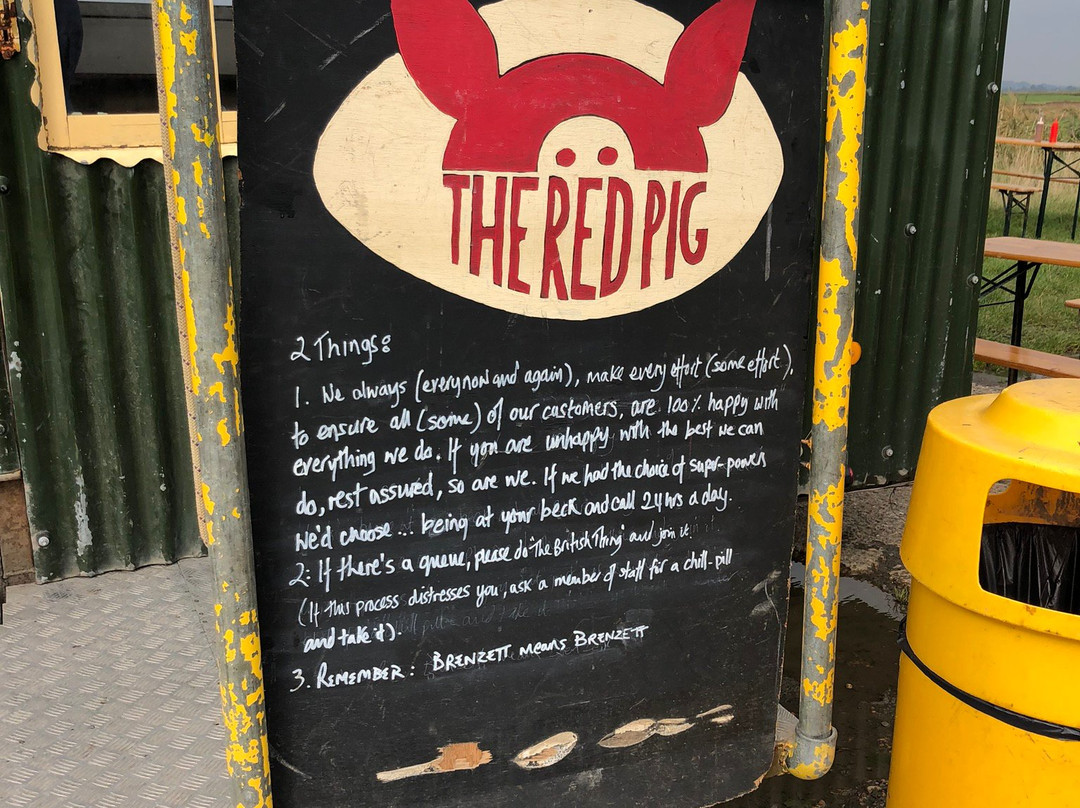 THE RED PIG
2 Things:
1. We always (every now and again), make every effort (some effort),
to ensure all (some) of our customers, are 100% happy with
everything we do. If you are unhappy with the best we can
do, rest assured, so are we. If we had the choice of super-powers
we'd choose... being at your beck and call 24 hrs a day.
2: If there's a queue, please do 'The British Thing' and join it.
(If this process distresses you, ask a member of staff for a chill-pill
and take it).
3. REMEMBER: BRENZETT MEANS BRENZETT